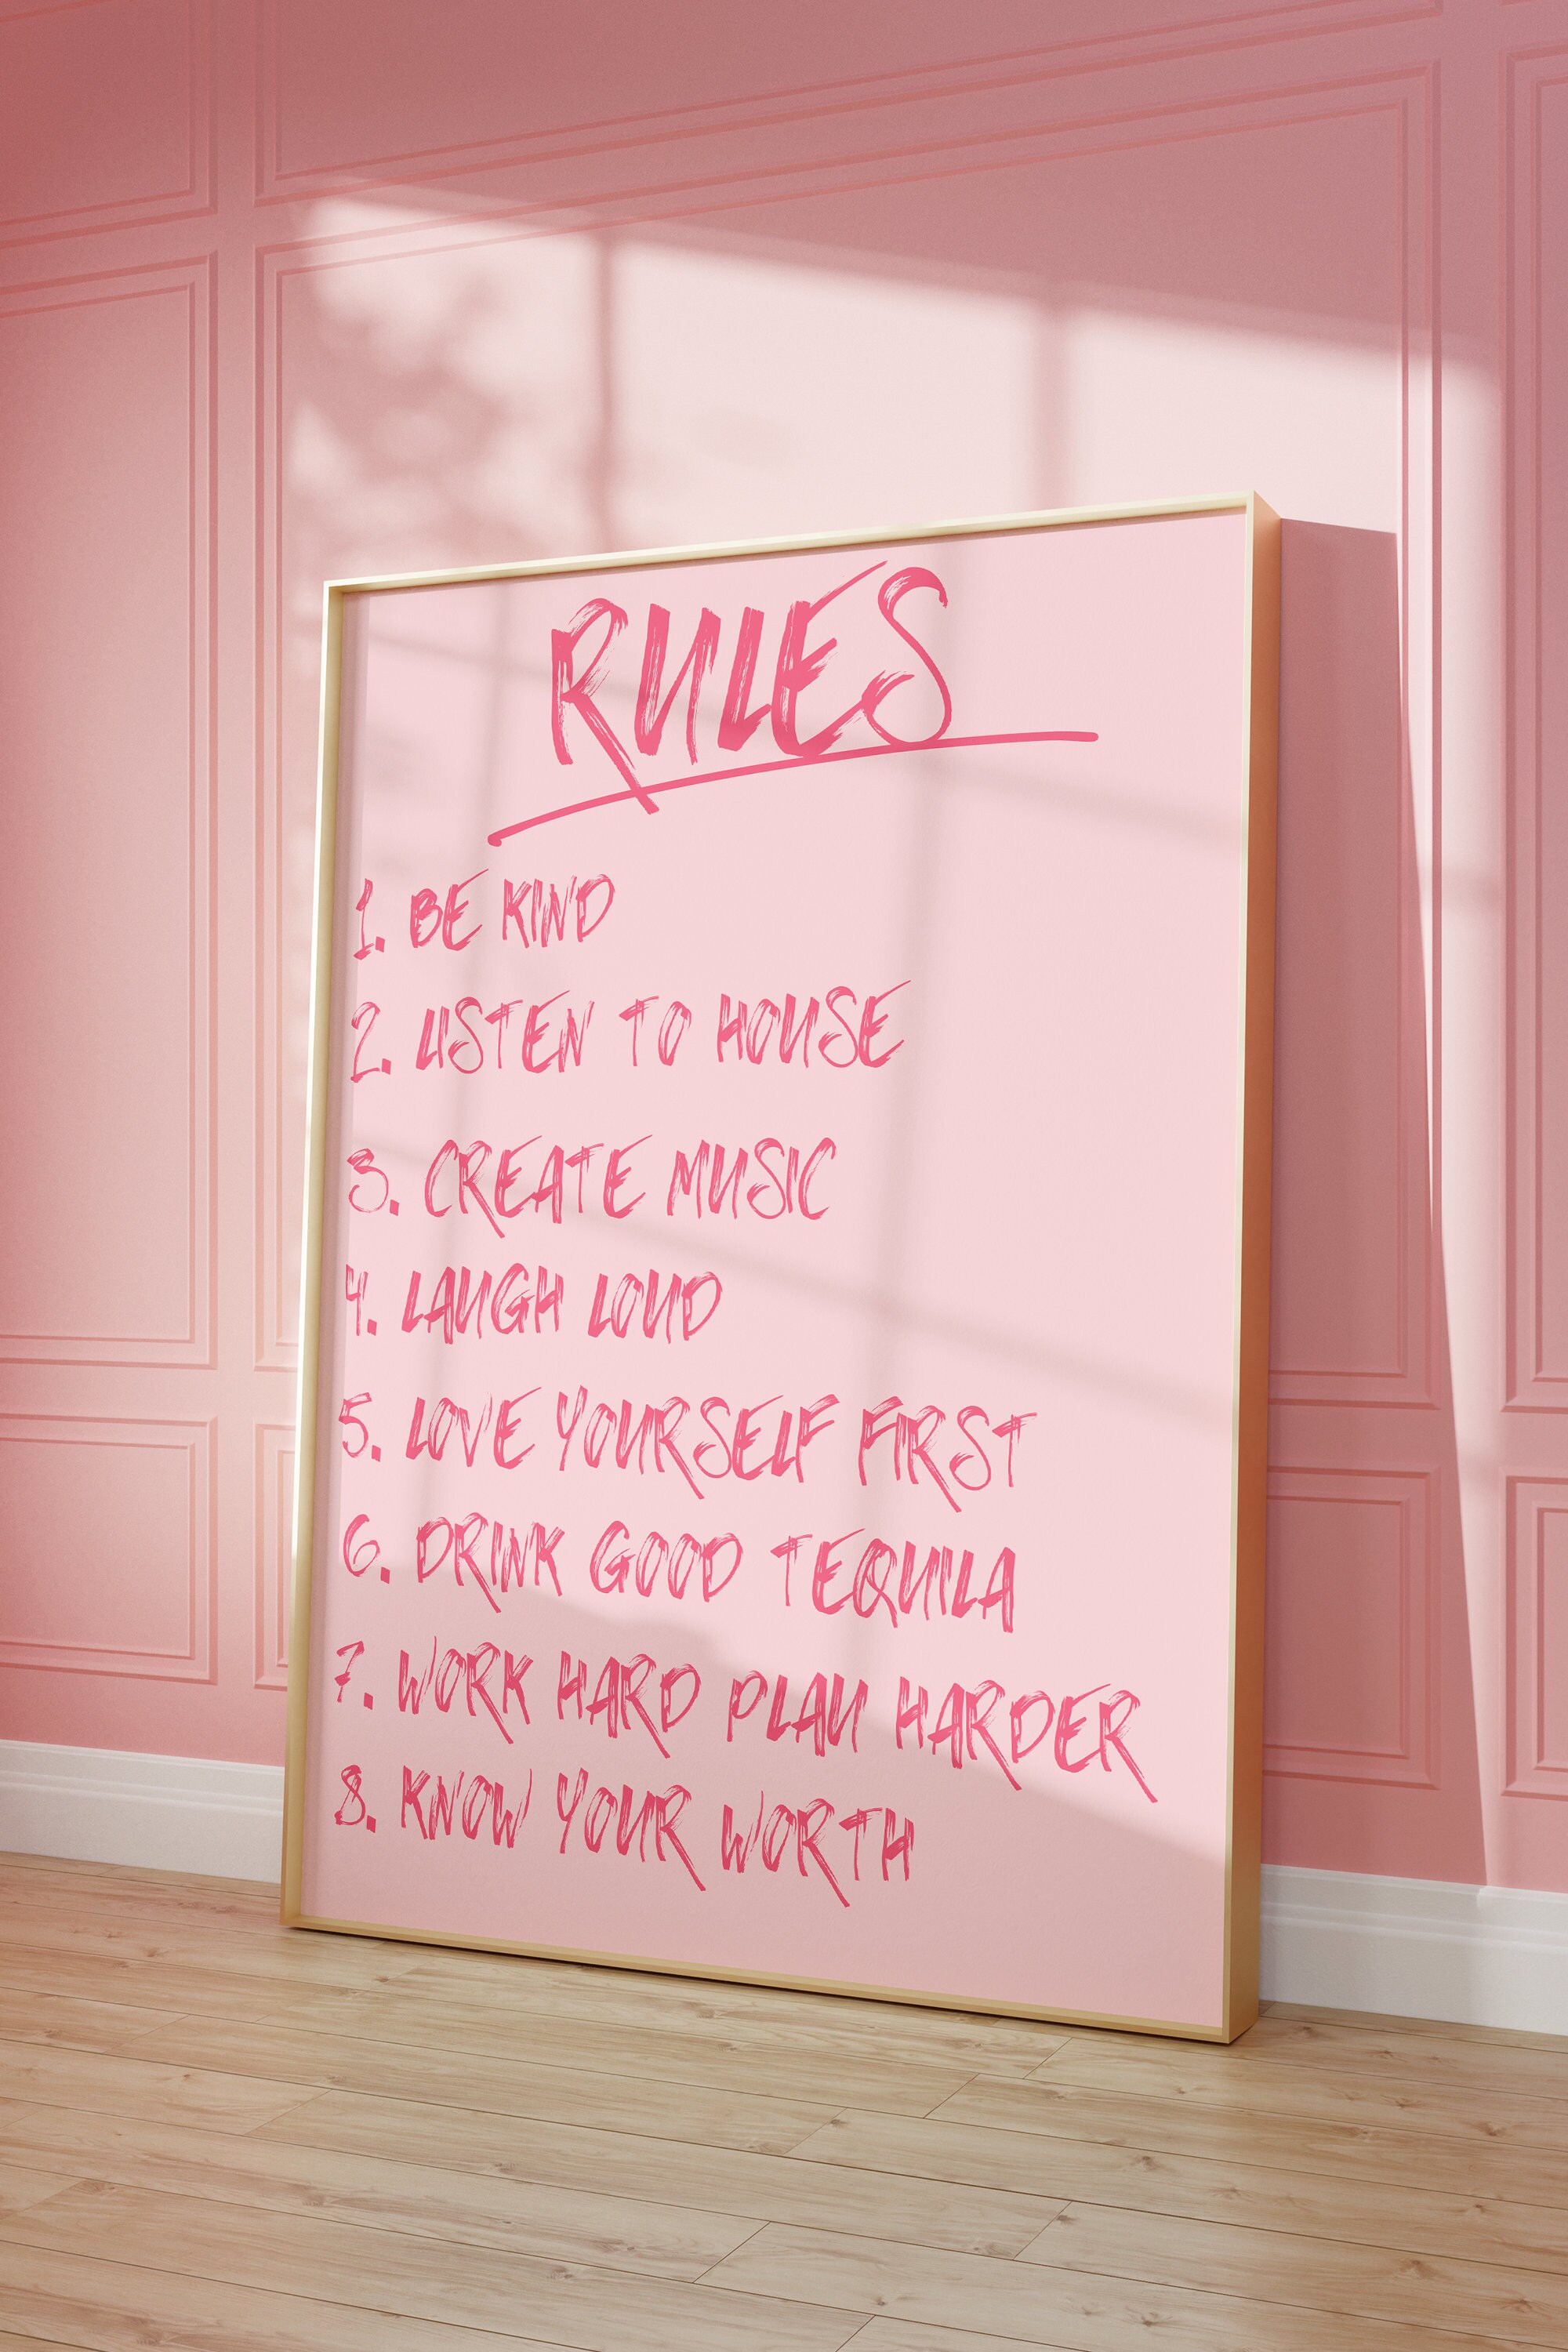 RULES
1. BE KIND
2. LISTEN TO HOUSE
3. CREATE MUSIC
4. LAUGH LOUD
5. LOVE YOURSELF FIRST
6. DRINK GOOD TEQUILA
7. WORK HARD PLAY HARDER
8. KNOW YOUR WORTH